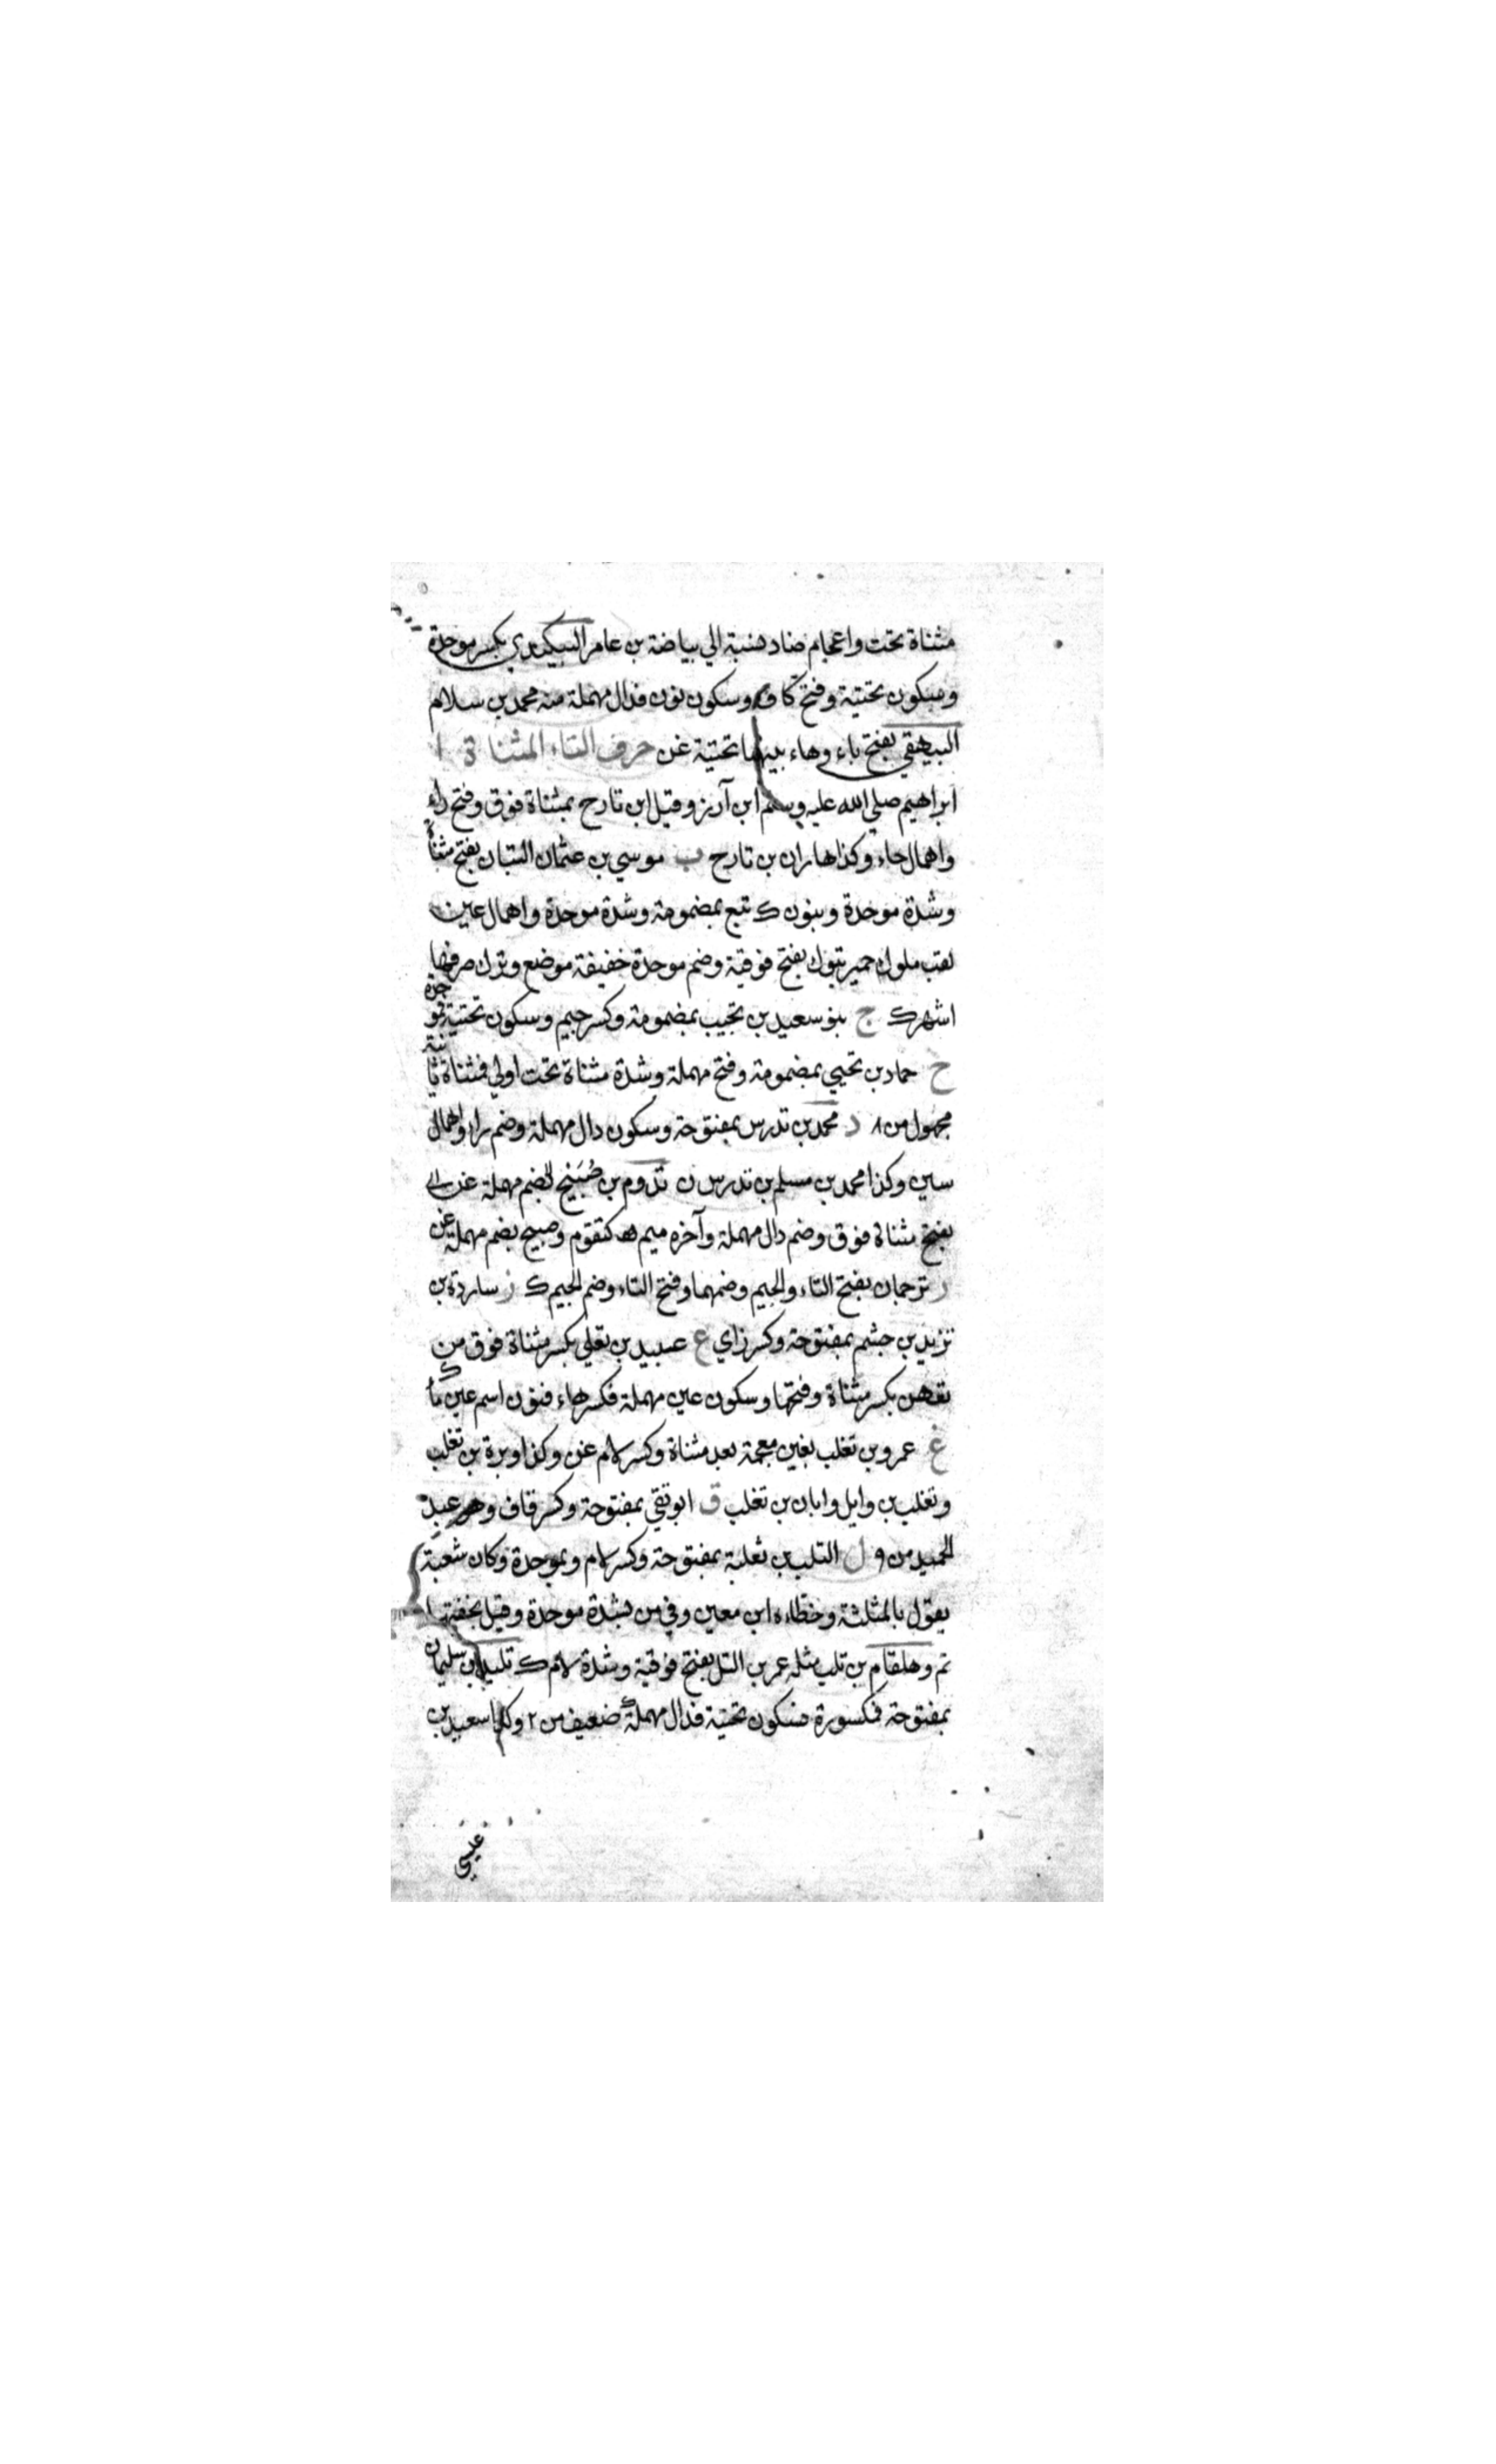 مثناة تحت واعجام ضاد منبة الي بياضة بن عامر البيكندي بكسر موحدة
وسكون تحتية وفتح كاف وسكون نون فدال مهملة منه محمد بن سلام
البيهقي بفتح باء وهاء بينهما تحتية غن حرف التاء المثناة ا
ابراهيم صلي الله عليه وسلم ابن آزر وقيل ابن تارح بمثناة فوق وفتح راء
واهمال حاء وكذا هاران بن تارح ب موسي بن عثمان التبان بفتح مثناة
وشدة موحدة وبنون ك تبع بمضمومة وشدة موحدة واهمال عين
لقب ملوك حمير تبوك بفتح فوقية وضم موحدة خفيفة موضع وترك صرفها
اشهر ك ج بنو سعيد بن تجيب بمضمومة وكسر جيم وسكون تحتية فموحدة
ح حماد بن تحيي بمضمومة وفتح مهملة وشدة مثناة تحت اولي فمثناة ثانية
مجهول من ٨ د محمد بن تدرس بمفتوحة وسكون دال مهملة وضم راء واهمال
سين وكذا محمد بن مسلم بن تدرس ن تدوم بن صُبَيح بضم مهملة غن
بفتح مثناة فوق وضم دال مهملة وآخره ميم هـ كتقوم وصبيح بضم مهملة غن
ر ترجمان بفتح التاء والجيم وضمهما وفتح التاء وضم الجيم ك ز ساردة بن
تزيد بن جشم بمفتوحة وكسر زاي ع عبيد بن تعلي بكسر مثناة فوق من
تعهن بكسر مثناة وفتحها وسكون عين مهملة فكسر هاء فنون اسم عين ماء ك
غ عمرو بن تغلب بغين معجمة بعد مثناة وكسر لام غن وكذا وبرة بن تغلب
وتغلب بن وايل وابان بن تغلب ق ابو تقي بمفتوحة وكسر قاف وهو عبد
الحميد من ٩ ل التلب بن ثعلبة بمفتوحة وكسر لام وبموحدة وكان شعبة
يقول بالمثلثة وخطاءه ابن معين وفي من بشدة موحدة وقيل بخفتها
تم وهلقام بن تلب مثله عمر بن التل بفتح فوقية وشدة لام ك تليد بن سليمان
بمفتوحة فمكسورة فسكون تحتية فدال مهملة ضعيف من ٢ وكذا سعيد بن
عيسي